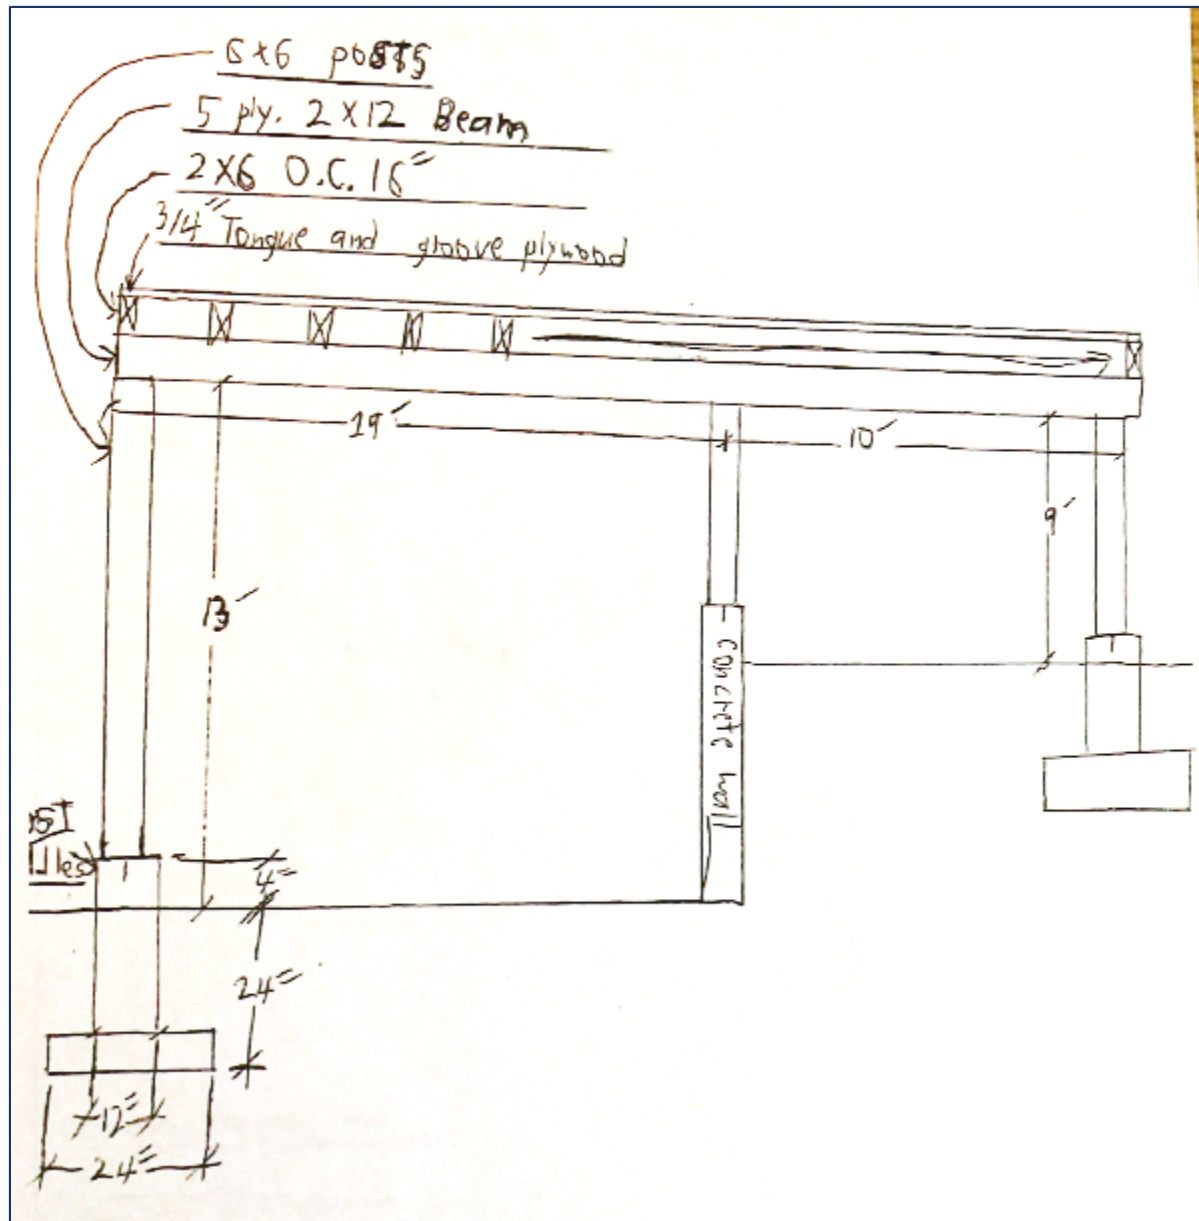 6x6 posts
5 ply. 2x12 Beam
2x6 O.C. 16"
3/4" Tongue and groove plywood
19'
10'
9'
13'
concrete wall
4"
24"
12"
24"